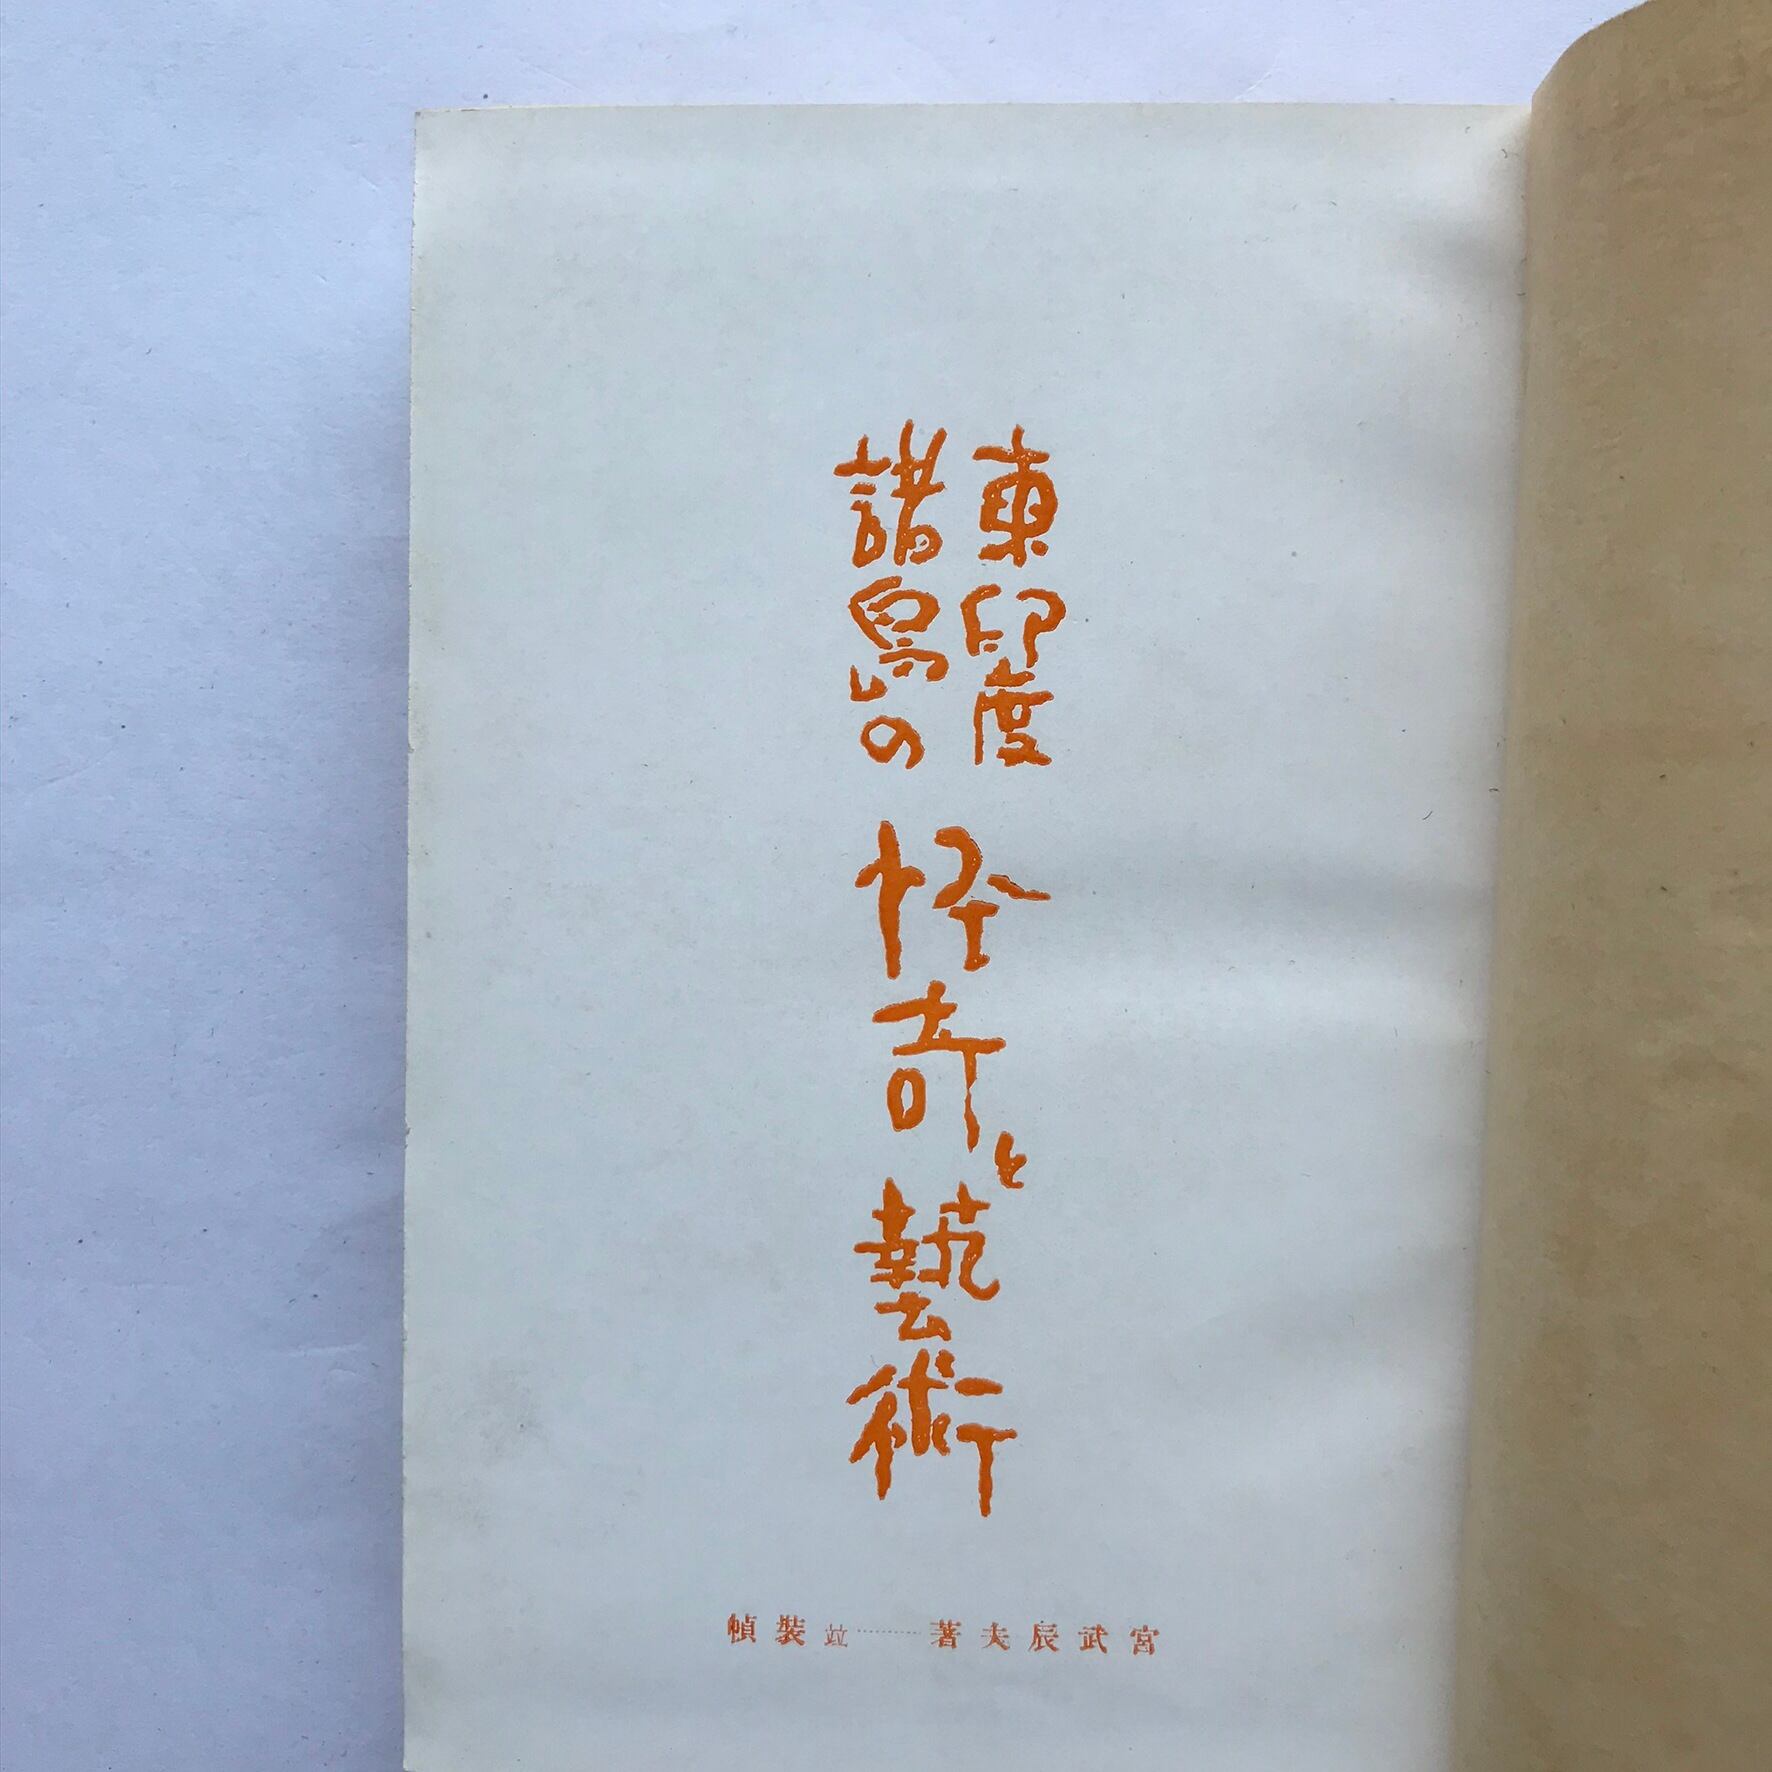 東印度
諸島の
怪奇と藝術
宮武辰夫著………竝裝幀